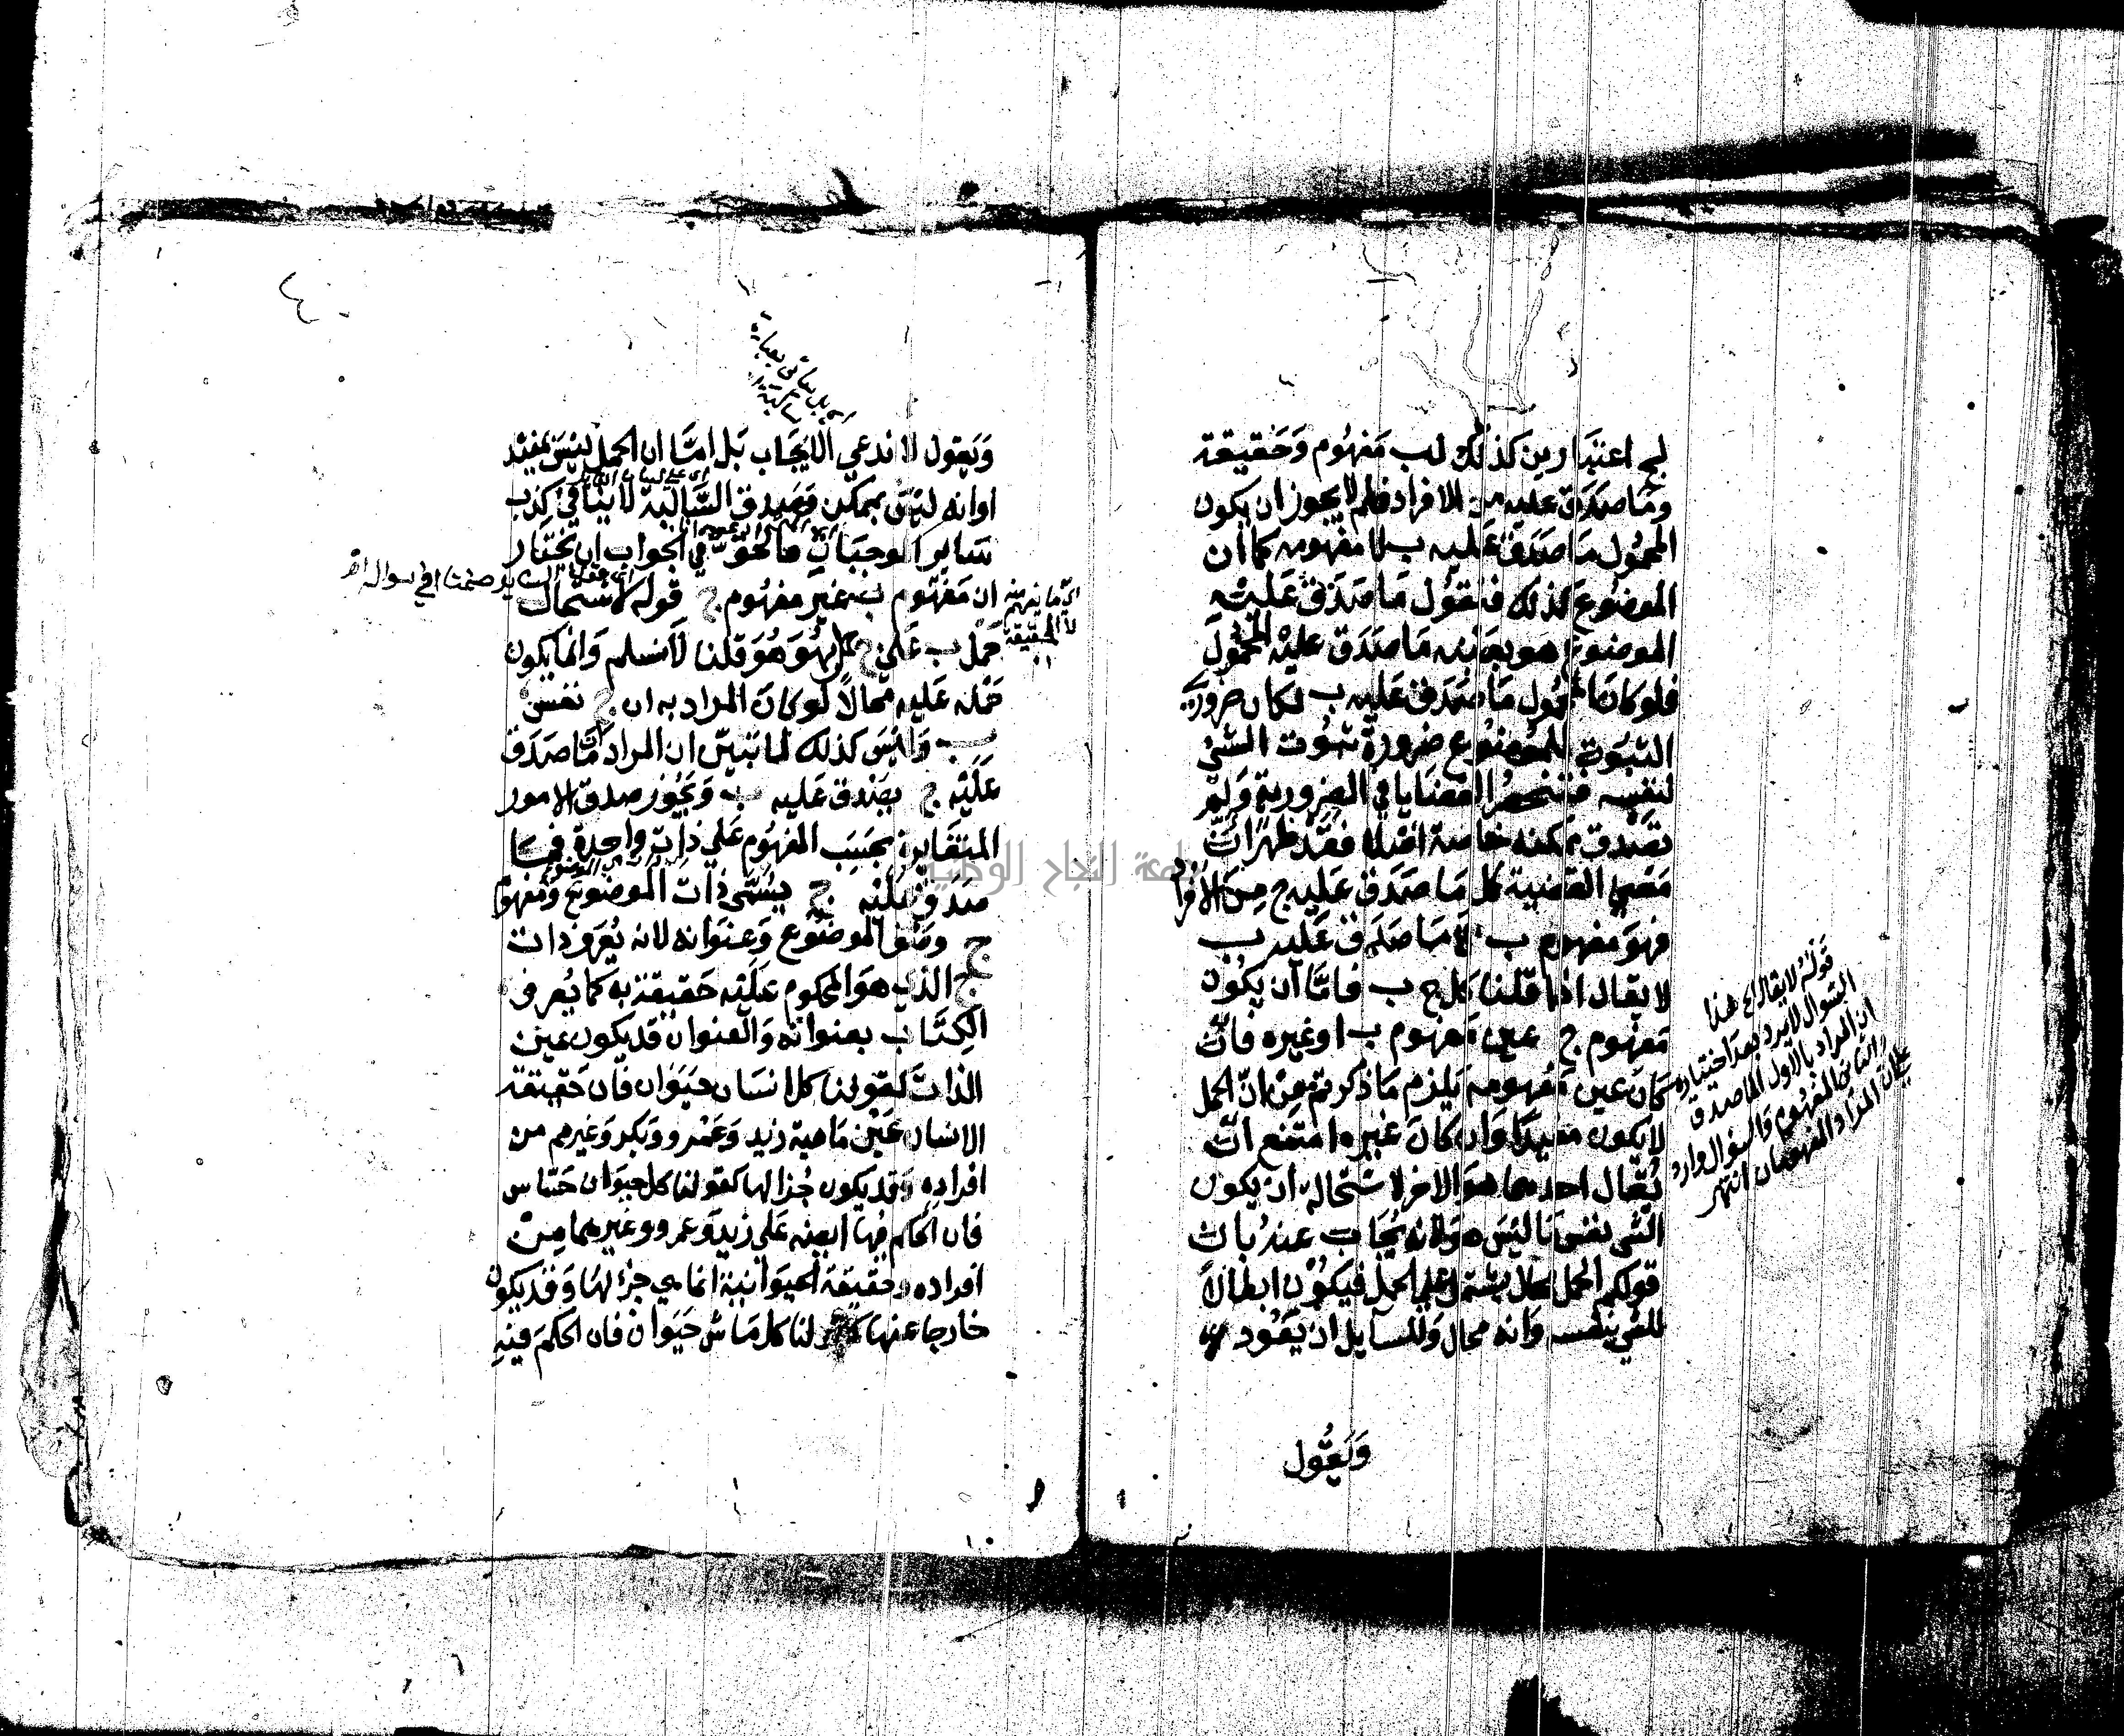 لج اعتبارين كذلك لب مفهوم وحقيقة
وما صدق عليه من الافراد فلم لا يجوز ان يكون
المحمول ما صدق عليه ب لا مفهومه كما ان
الموضوع كذلك فنقول ما صدق عليه
الموضوع هو بعينه ما صدق عليه المحمول
فلو كان المحمول ما صدق عليه ب لكان ضروري
الثبوت للموضوع ضرورة ثبوت الشئ
لنفسه فتنحصر القضايا في الضرورية ولم
تصدق ممكنة خاصة اصلا فقد ظهر ان
معني القضية كل ما صدق عليه ج من الافراد
فهو مفهوم ب لا ما صدق عليه ب
لا يقال اذا قلنا كل ج ب فاما ان يكون
مفهوم ج عين مفهوم ب او غيره فان
كان عين مفهومه يلزم ما ذكرتم من ان الحمل
لا يكون مفيدا وان كان غيره امتنع ان
يقال احدهما هو الاخر لاستحالة ان يكون
الشئ نفس ما ليس هو لانه يجاب عنه بان
قولكم الحمل محال يشتمل علي الحمل فيكون ابطالا
للشئ بنفسه وانه محال وللسايل ان يعود
ويقول
قوله لا يقال الخ هذا
السوال لا يرد بعد اختياره
ان المراد بالاول الماصدق
والثاني المفهوم والسؤال وارد
علي ان المراد المفهومان انتهى
ويقول لا ندعي الايجاب بل اما ان الحمل ليس بمفيد
او انه ليس بممكن وصدق السالبة لا ينافي كذب
ساير الموجبات فالحق في الجواب ان نختار
ان مفهوم ب غير مفهوم ج قوله لاستحالة
حمل ب علي ج بهو هو قلنا لا نسلم وانما يكون
حمله عليه محالا لو كان المراد به ان ج نفس
ب وليس كذلك لما تبين ان المراد ان ما صدق
عليه ج يصدق عليه ب ويجوز صدق الامور
المتغايرة بحسب المفهوم علي ذات واحدة فما
صدق عليه ج يسمي ذات الموضوع ومفهوم
ج وصف الموضوع وعنوانه لانه يعرف ذات
ج الذي هو المحكوم عليه حقيقة به كما يعرف
الكتاب بعنوانه والعنوان قد يكون عين
الذات كقولنا كل انسان حيوان فان حقيقة
الانسان عين ماهية زيد وعمرو وبكر وغيرهم من
افراده وقد يكون جزا لها كقولنا كل حيوان حساس
فان الحكم فيها ايضا علي زيد وعمرو وغيرهما من
افراده وحقيقة الحيوانية انما هي جزء لها وقد يكون
خارجا عنها كقولنا كل ماش حيوان فان الحكم فيه
اي ما يفهم منه
لا الحقيقة
جامعة النجاح الوطنية